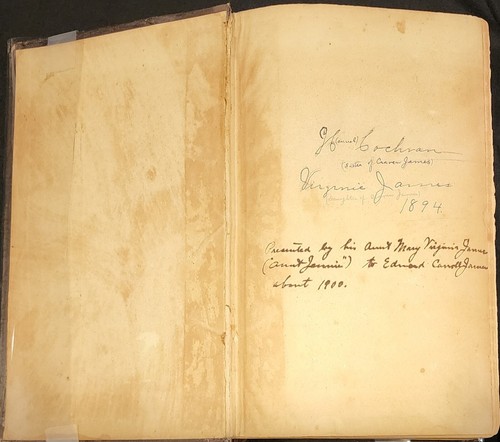 Cochran
(Sister of Craven James)
Virginie James
(daughter of
1894
Presented by his Aunt Mary Virginia James
("Aunt Jennie") to Edward Carroll James
about 1900.